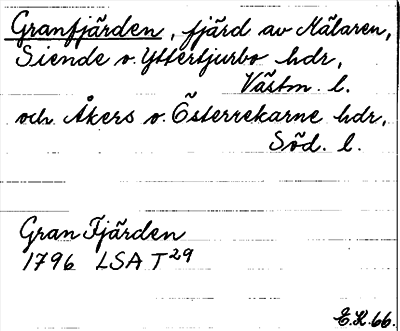 Granfjärden, fjärd av Mälaren,
Siende o. Yttertjurbo hdr,
Västm. l.
och Åkers o. Österrekarne hdr,
Söd. l.
Gran Fjärden
1796 LSA T29
E.K. 66.